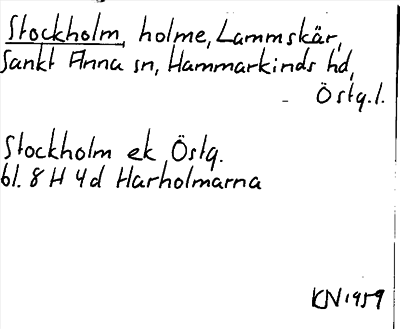 Stockholm, holme, Lammskär,
Sankt Anna sn, Hammarkinds hd,
Östg.l.
Stockholm ek Östg.
bl. 8 H 4d Harholmarna
KN 1959